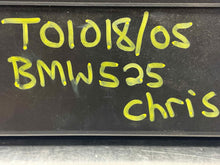 T01018/05
BMW525
Chris